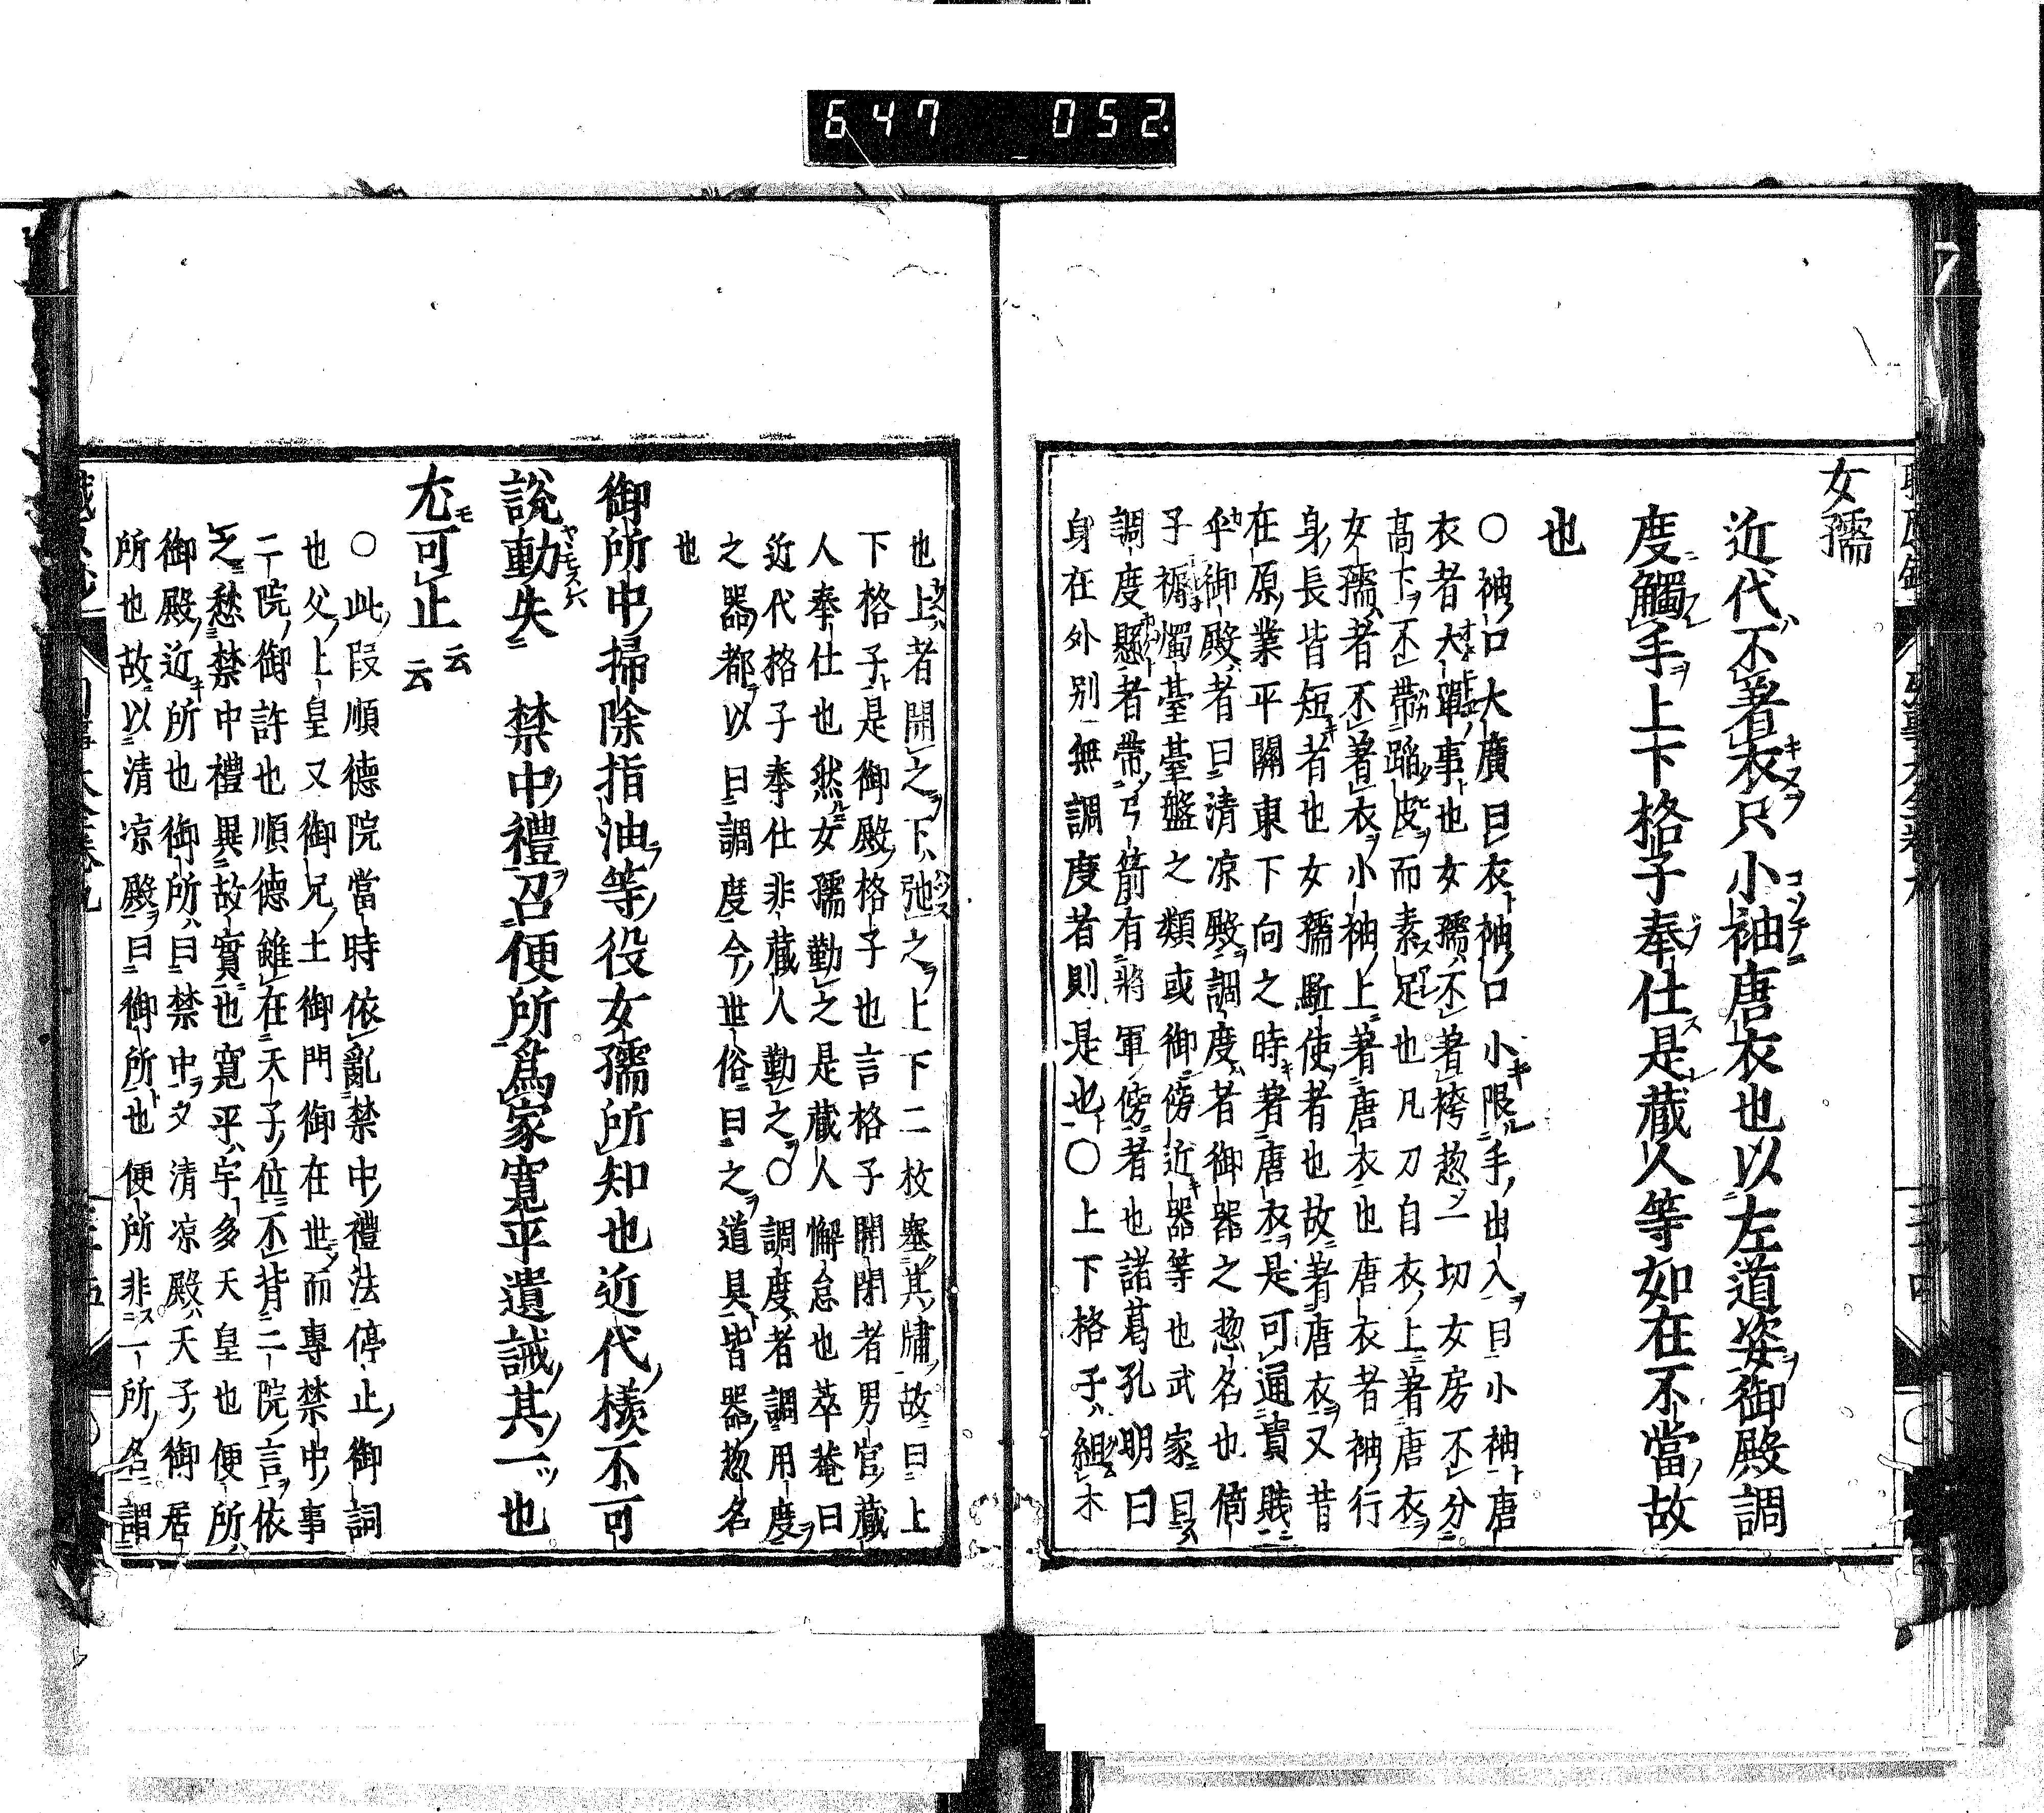 647 052.
女孺
近代不著衣只小袖唐衣也以左道姿御殿調
度觸手上下格子奉仕是藏人等如在不當故
也
○袖口大廣曰衣袖口小限手出入曰小袖唐
衣者大事也女孺不著袴惣一切女房不分
高下不帶蹈皮而素足也凡刀自衣上著唐衣
女孺者不著衣小袖上著唐衣也唐衣者袖行
身長皆短者也女孺駈使者也故著唐衣又昔
在原業平關東下向之時著唐衣是可通貴賤
乎御殿者曰清凉殿調度者御器之惣名也倚
子褥燭臺臺盤之類或御傍近器等也武家曰
調度懸者帶弓箭有將軍傍者也諸葛孔明曰
身在外別無調度者則是也○上下格子組木
也上者開之下弛之上下二枚塞其牗故曰上
下格子是御殿格子也言格子開閉者男官藏
人奉仕也然女孺勤之是藏人懈怠也萃菴曰
近代格子奉仕非藏人勤之○調度者調用度
之器都以曰調度今世俗曰之道具皆器惣名
也
御所中掃除指油等役女孺所知也近代樣不可
說動失 禁中禮召便所爲家寬平遺誡其一也
尤可止云云
○此段順德院當時依亂禁中禮法停止御詞
也父上皇又御兄土御門御在世而專禁中事
二院御許也順德雖在天子位不背二院言依
之愁禁中禮異故實也寬平宇多天皇也便所
御殿近所也御所曰禁中又清凉殿天子御居
所也故以清凉殿曰御所也便所非一所名謂